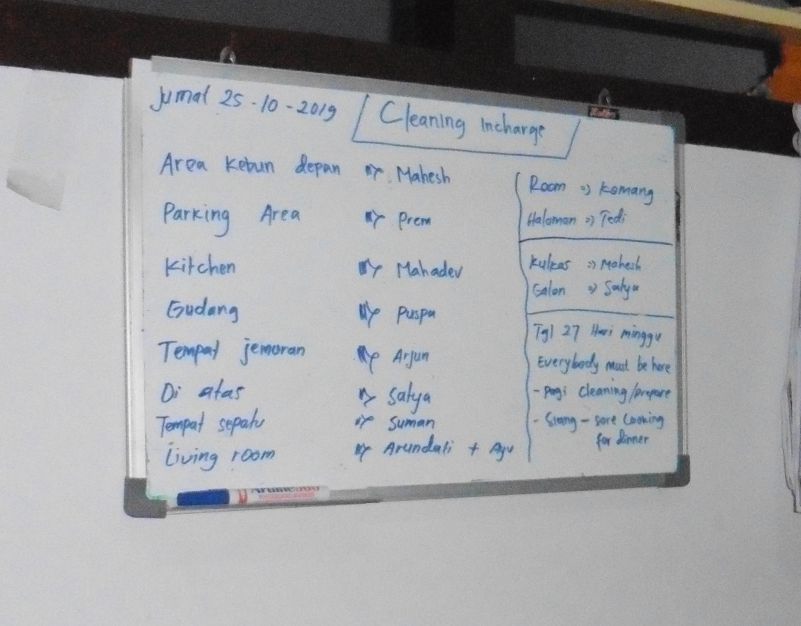 Jumat 25-10-2019
Cleaning Incharge
Area kebun depan => Mahesh
Parking Area => Prem
Kitchen => Mahadev
Gudang => Puspa
Tempat jemuran => Arjun
Di atas => Satya
Tempat sepatu => Suman
Living room => Arundati + Ayu
Room => Komang
Halaman => Tedi
Kulkas => Mahesh
Galon => Satya
Tgl 27 Hari minggu
Everybody must be here
- Pagi cleaning/prepare
- Siang - sore Cooking
for dinner